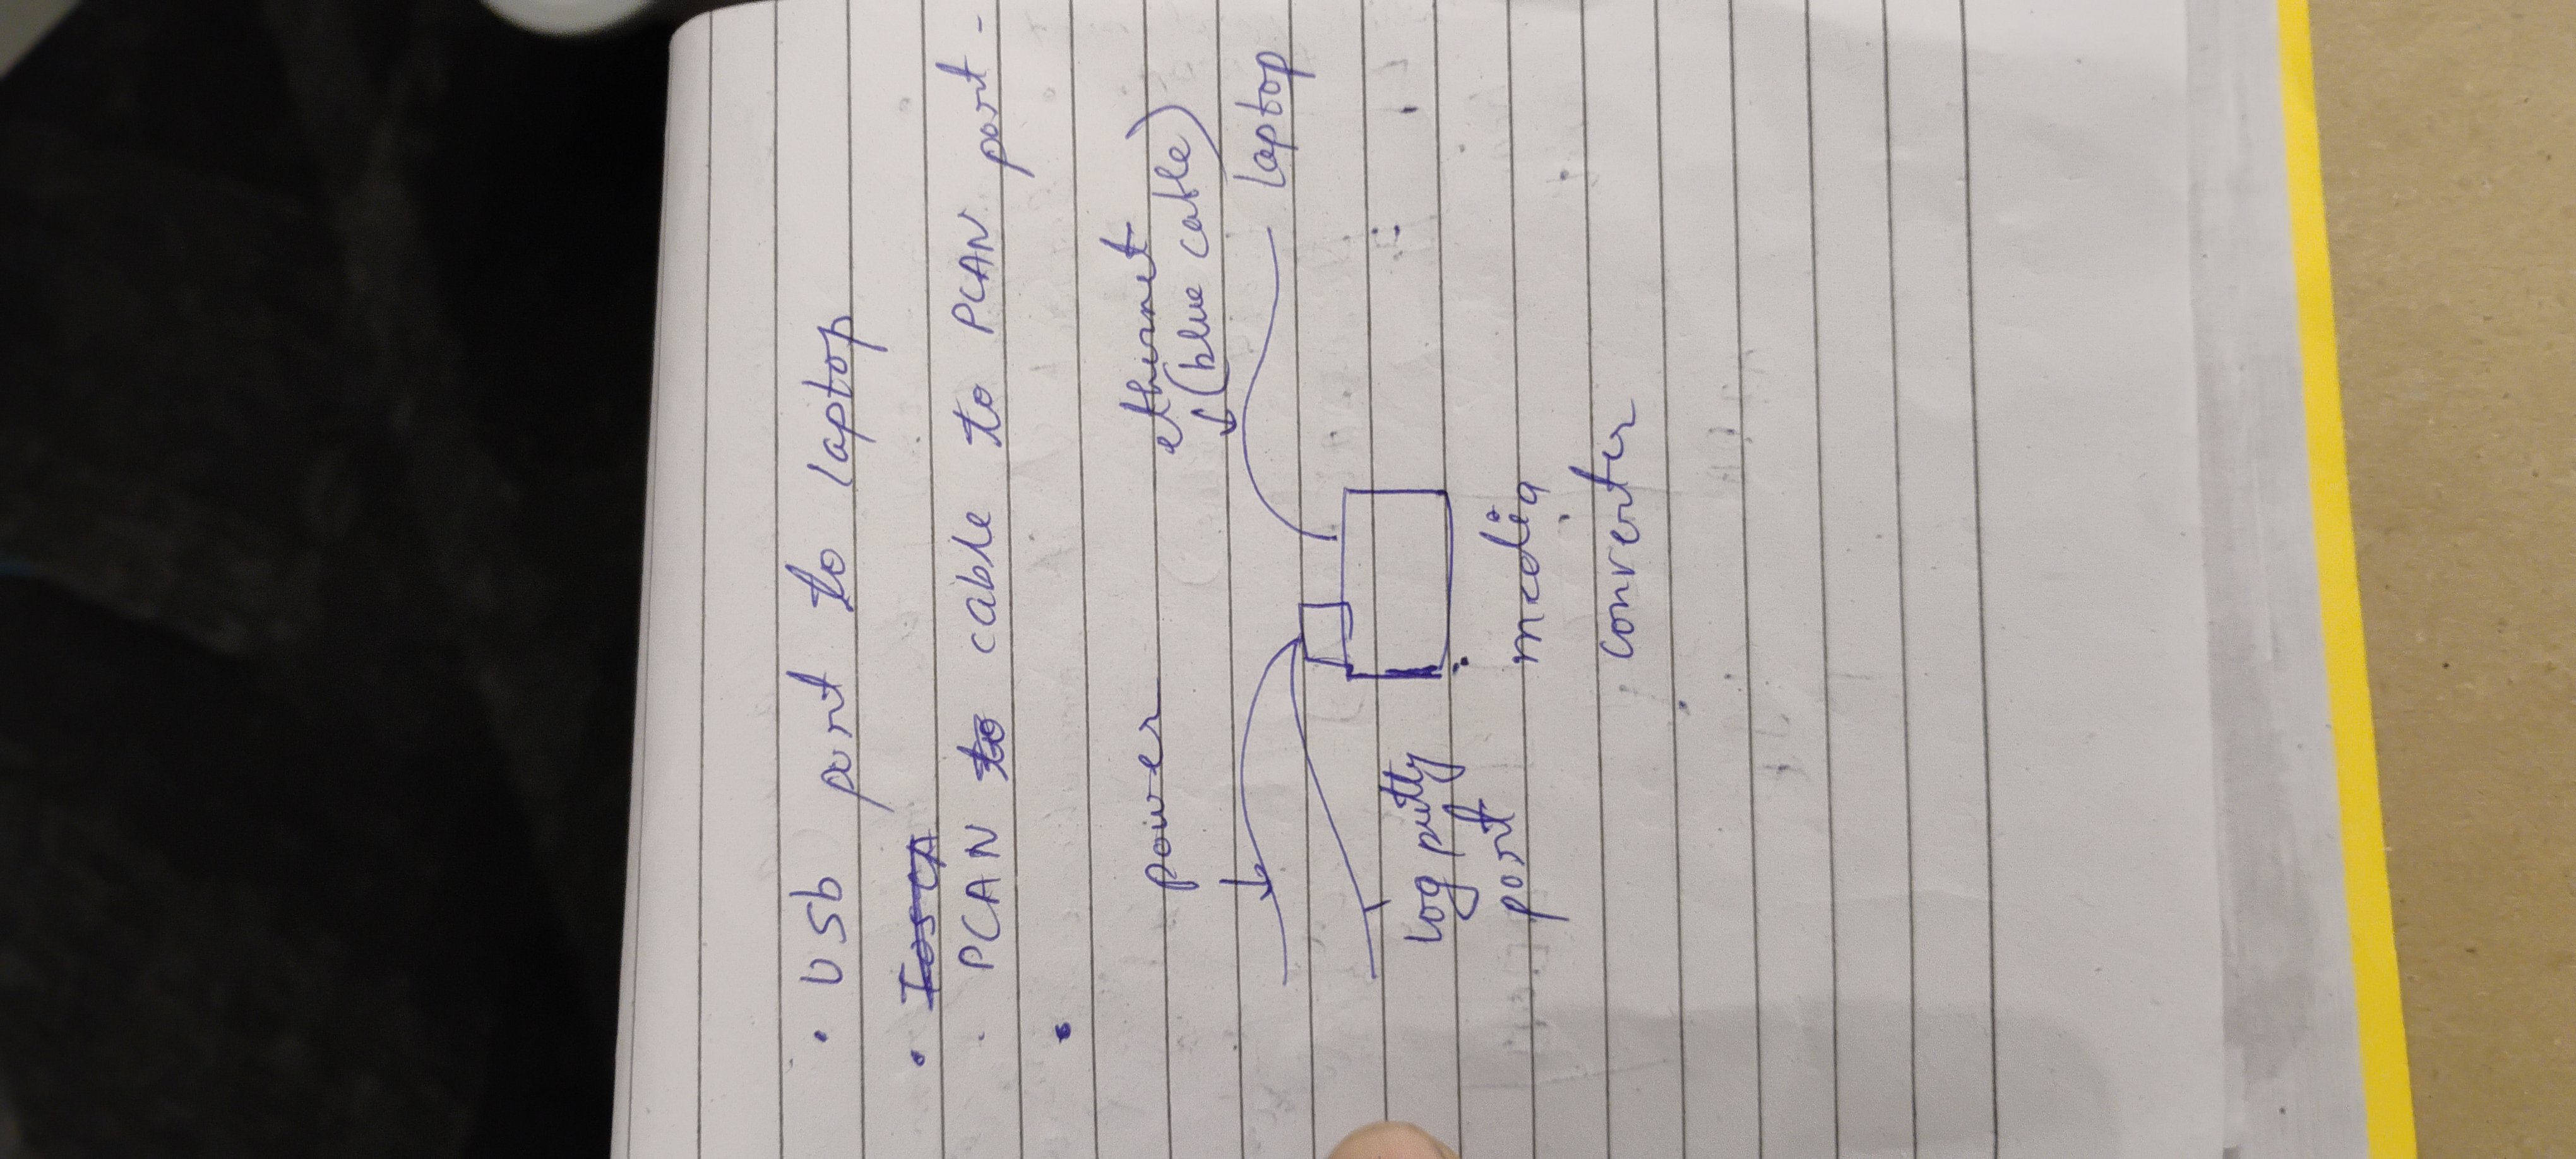 • Usb port to laptop
• IOSCA
· PCAN to cable to PCAN port -
•
power
ethernet
(blue cable)
laptop
log putty
port
media
converter